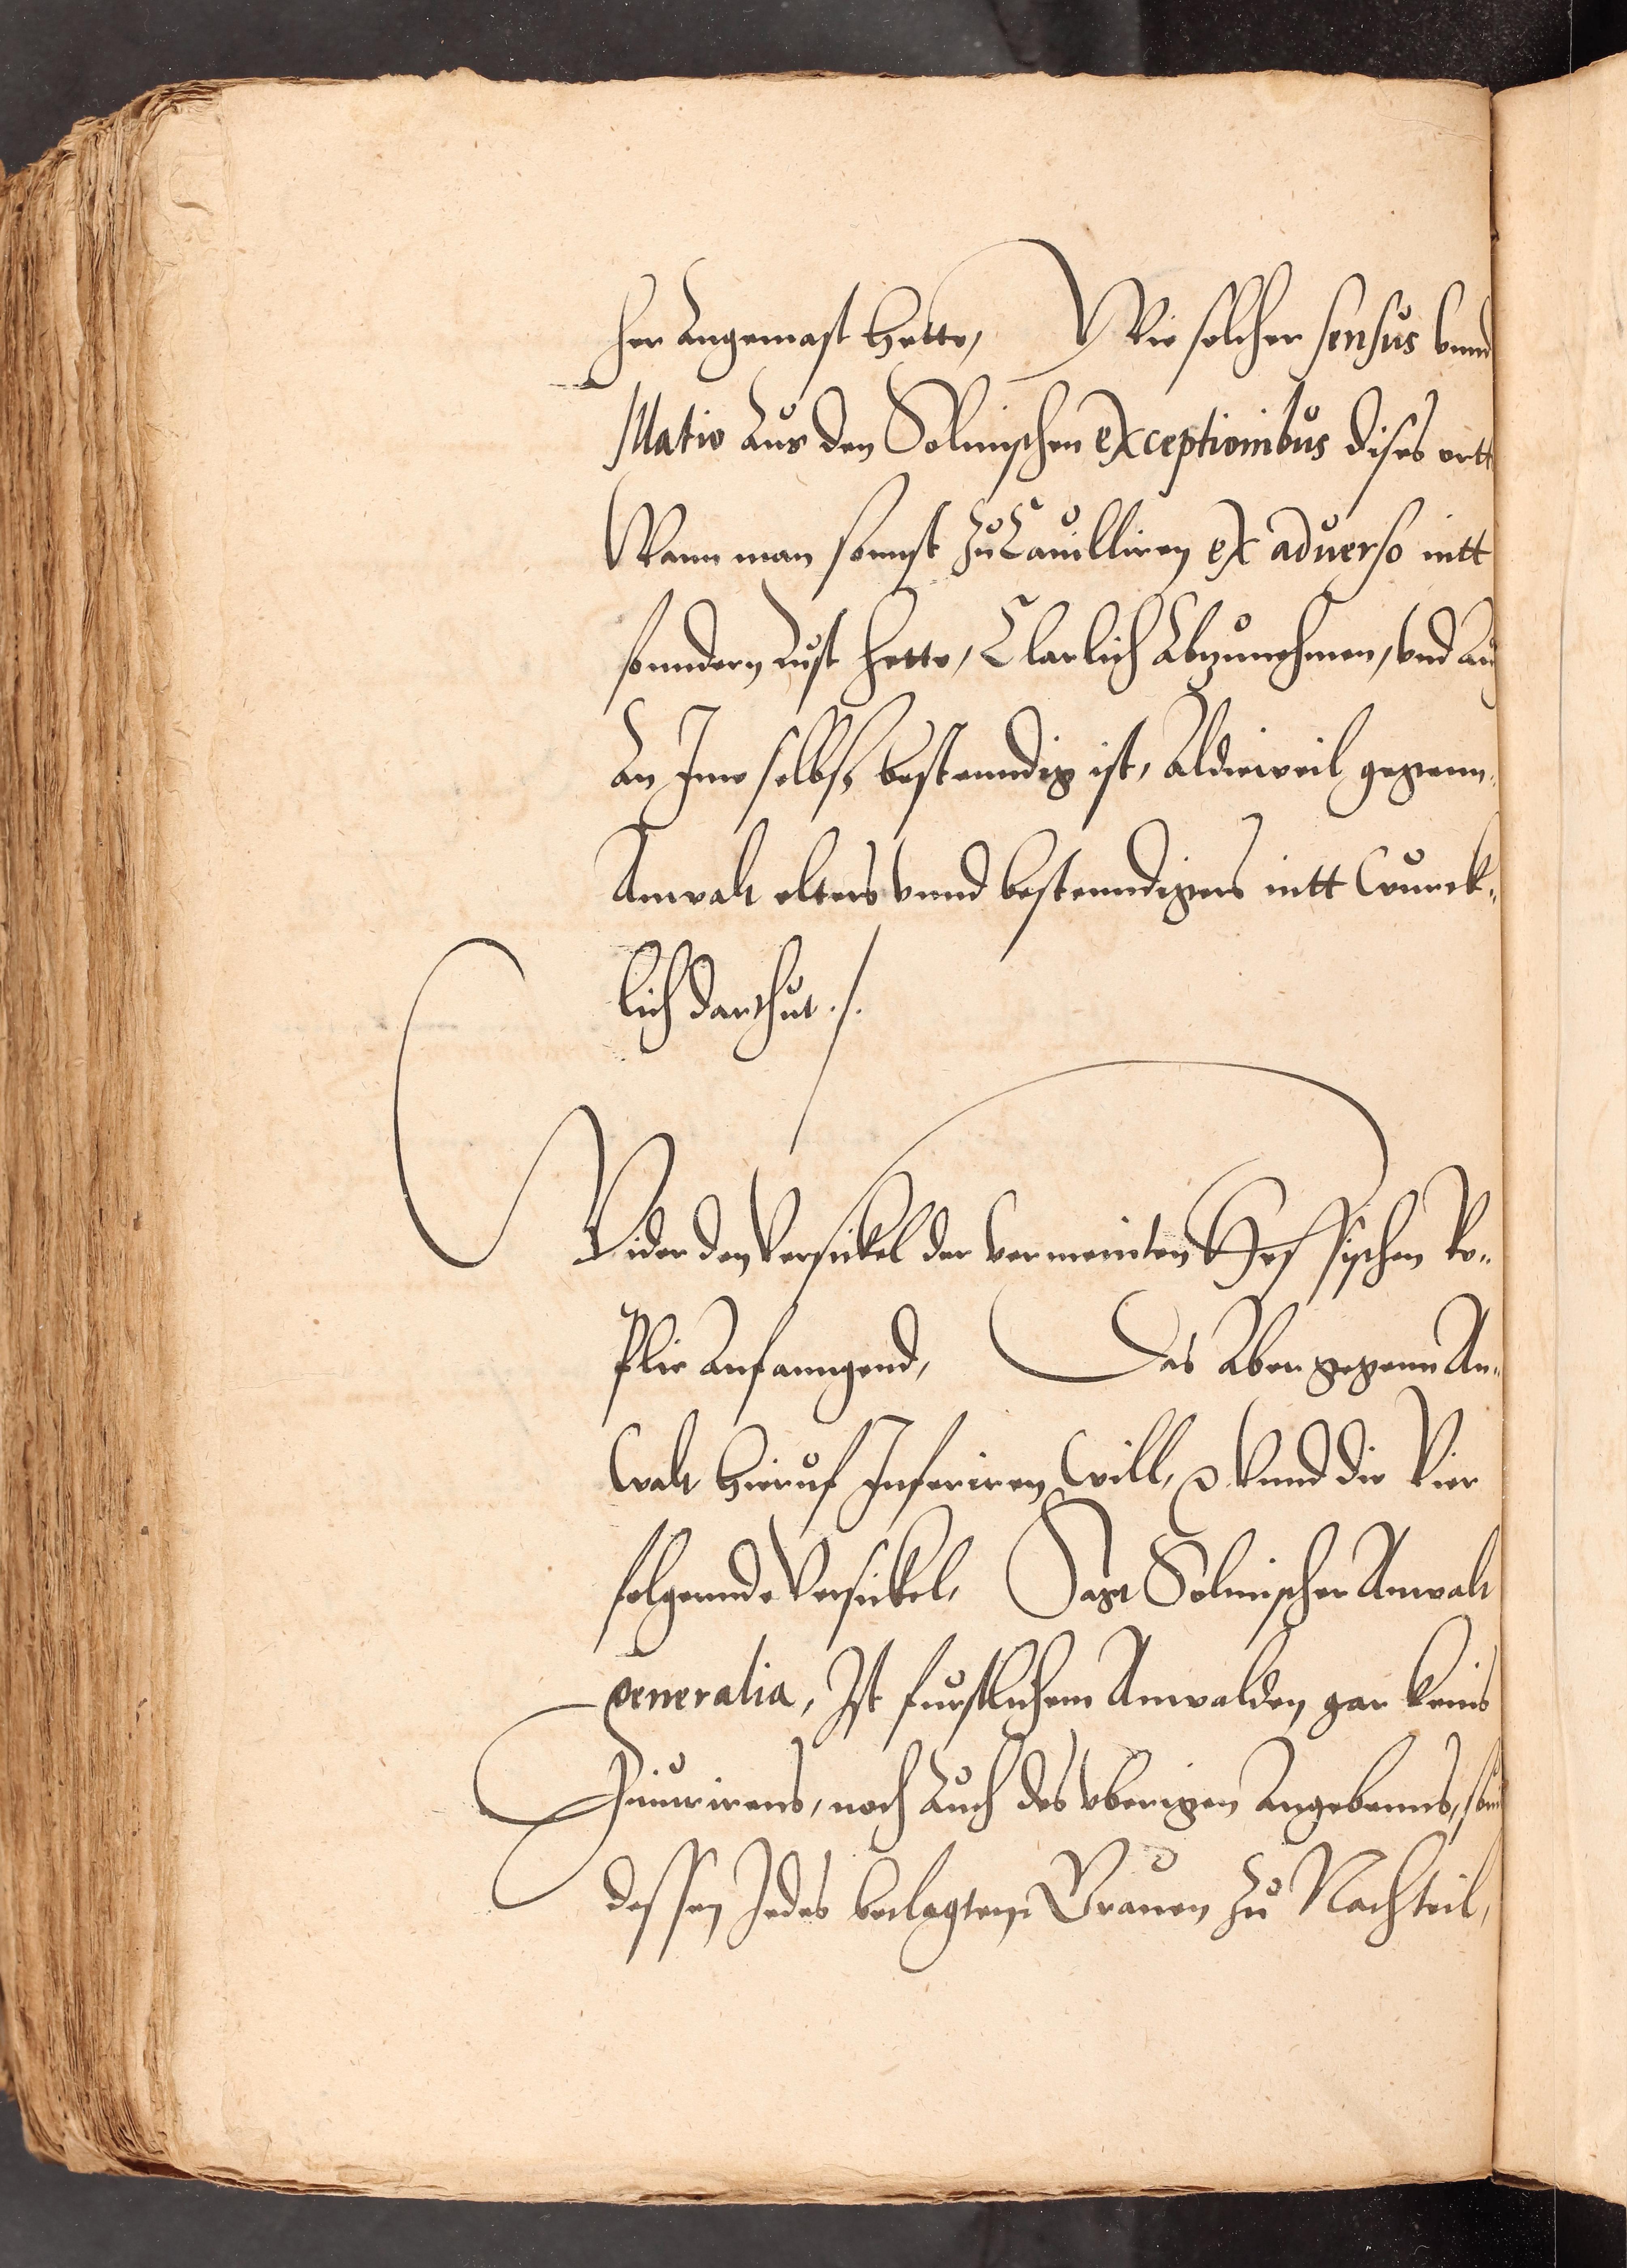 her Angemast hette, Wie solcher sensus vnnd
Illatio Aus den Solmischen exceptionibus dises ortt
Wann man sonnst zu Cauilliren ex aduerso nitt
sonndern lust hette, Clarlich Abzunehmen, vnd Au
An Ime selbst bestenndig ist, Aldieweil gegenn„
Anwalt elters vnnd bestenndigers nitt Wurck„
lich darthut ./.
Wider den Versickel der vermeinten Hessischen Re„
plic Anfanngend, Das Aber gegenn An„
walt hieruf Inferiren will, vnnd die Vier
folgennde Versickel, Sagt Solmischer Anwalt
generalia, Ist furstlichem Anwalden gar keins
Iniurirens, noch Auch des vberigen Angebenns,
dessen Jedes beclagtem Grauen zu Nachteil,